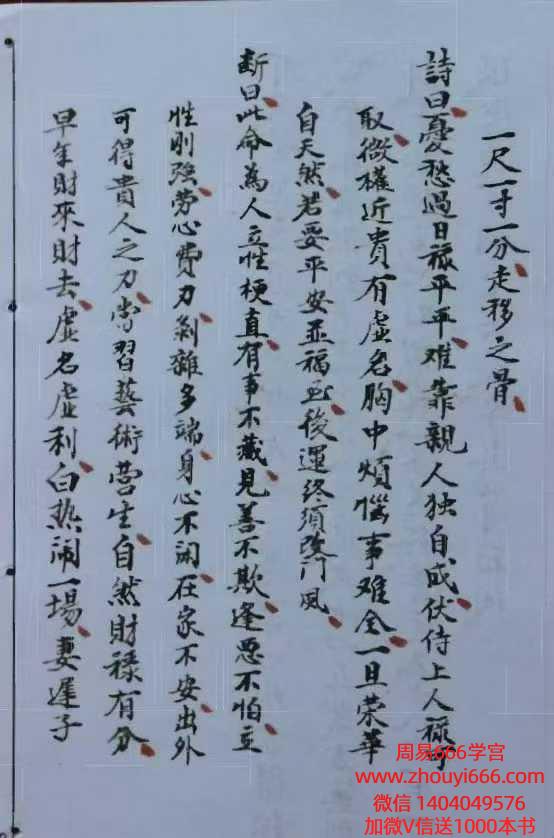 一尺一寸一分、走移之骨、
詩曰、憂愁過日祿平平、难靠親人独自成、伏侍上人祿可
取、微權近貴有虚名、胸中煩惱事难全、一旦荣華
自天然、若要平安並福至、後運终須改门风
断曰、此命為人立性梗直、有事不藏、見善不欺、逢恶不怕、立
性刚強、劳心費力、剝雜多端、身心不闲、在家不安、出外
可得貴人之力、当習藝術营生、自然財禄有分、
早年財來財去、虚名虚利、白热闹一場、妻遲子
周易666学宫
www.zhouyi666.com
微信 1404049576
加微V信送1000本书